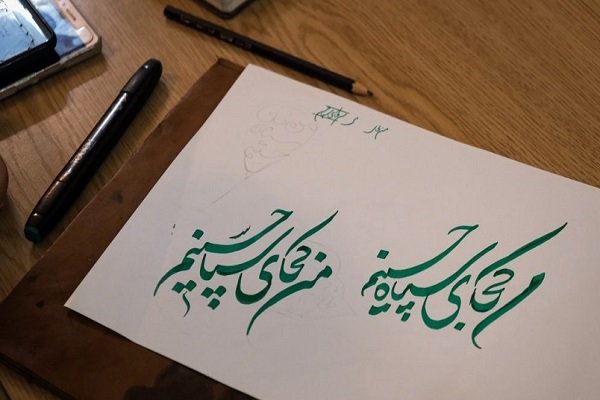 من کجای سپاه حسینیم
من کجای سپاه حسینم